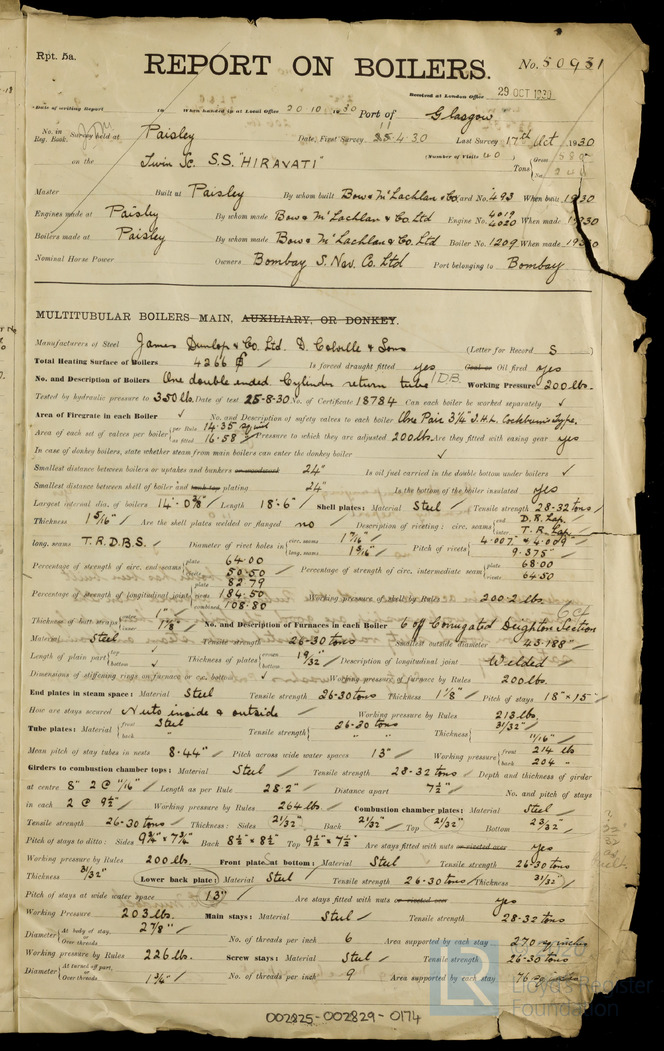 Rpt. 5a.
REPORT ON BOILERS.
No. 50931
Received at London Office 29 OCT 1930
Date of writing Report 19 When handed in at Local Office 20.10.1930 Port of Glasgow
No. in Reg. Book. Survey held at Paisley Date, First Survey 11.4.30 Last Survey 17th Oct 1930
on the Twin Sc. S.S. "HIRAVATI" (Number of Visits 40) Tons Gross Net
Master Built at Paisley By whom built Bow & McLachlan & Co Yard No. 493 When built 1930
Engines made at Paisley By whom made Bow & McLachlan & Co. Ltd Engine No. 4019 4020 When made 1930
Boilers made at Paisley By whom made Bow & McLachlan & Co. Ltd Boiler No. 1209 When made 1930
Nominal Horse Power Owners Bombay S. Nav. Co. Ltd Port belonging to Bombay
MULTITUBULAR BOILERS MAIN, AUXILIARY, OR DONKEY.
Manufacturers of Steel James Dunlop & Co. Ltd. D. Colville & Sons (Letter for Record S)
Total Heating Surface of Boilers 4266 Is forced draught fitted yes Coal or Oil fired yes
No. and Description of Boilers One double ended Cylindr return tube D.B. Working Pressure 200 lbs.
Tested by hydraulic pressure to 350 lbs. Date of test 25-8-30 No. of Certificate 18784 Can each boiler be worked separately ✓
Area of Firegrate in each Boiler ✓ No. and Description of safety valves to each boiler One Pair 3¼" I.H.L. Cockburn's Type.
Area of each set of valves per boiler per Rule 14.35 as fitted 16.58 Pressure to which they are adjusted 200 lbs. Are they fitted with easing gear yes
In case of donkey boilers, state whether steam from main boilers can enter the donkey boiler ✓
Smallest distance between boilers or uptakes and bunkers or woodwork 24" Is oil fuel carried in the double bottom under boilers ✓
Smallest distance between shell of boiler and tank top plating 24" Is the bottom of the boiler insulated yes
Largest internal dia. of boilers 14'-0⅜" Length 18'-6" Shell plates: Material Steel Tensile strength 28-32 tons
Thickness 1 5/16" Are the shell plates welded or flanged no Description of riveting: circ. seams end D.R. Lap. inter. T.R. Lap.
long. seams T.R.D.B.S. Diameter of rivet holes in circ. seams 1 7/16" long. seams 1 5/16" Pitch of rivets 4.007" & 4.009" 9.375"
Percentage of strength of circ. end seams plate 64.00 rivets 50.50 Percentage of strength of circ. intermediate seam plate 68.00 rivets 64.50
Percentage of strength of longitudinal joint plate 82.79 rivets 184.50 combined 108.80 Working pressure of shell by Rules 200.2 lbs.
Thickness of butt straps outer 1" inner 1⅛" No. and Description of Furnaces in each Boiler 6 off Corrugated Deighton Section
Material Steel Tensile strength 26-30 tons Smallest outside diameter 43.188"
Length of plain part top bottom ✓ Thickness of plates crown bottom 19/32" Description of longitudinal joint Welded
Dimensions of stiffening rings on furnace or c.c. bottom ✓ Working pressure of furnace by Rules 200 lbs.
End plates in steam space: Material Steel Tensile strength 26-30 tons Thickness 1⅛" Pitch of stays 18" × 15"
How are stays secured Nuts inside & outside Working pressure by Rules 213 lbs.
Tube plates: Material front back Steel " Tensile strength 26-30 tons " " Thickness 31/32" 11/16"
Mean pitch of stay tubes in nests 8.44" Pitch across wide water spaces 13" Working pressure front 214 lbs back 204 "
Girders to combustion chamber tops: Material Steel Tensile strength 28-32 tons Depth and thickness of girder
at centre 8" 2 @ 11/16" Length as per Rule 28.2" Distance apart 7½" No. and pitch of stays
in each 2 @ 9½" Working pressure by Rules 264 lbs. Combustion chamber plates: Material Steel
Tensile strength 26-30 tons Thickness: Sides 21/32" Back 21/32" Top 21/32" Bottom 23/32"
Pitch of stays to ditto: Sides 9¾" × 7¾" Back 8½" × 8½" Top 9½" × 7½" Are stays fitted with nuts or riveted over yes
Working pressure by Rules 200 lbs. Front plate at bottom: Material Steel Tensile strength 26-30 tons
Thickness 31/32" Lower back plate: Material Steel Tensile strength 26-30 tons Thickness 31/32"
Pitch of stays at wide water space 13" Are stays fitted with nuts or riveted over yes
Working Pressure 203 lbs. Main stays: Material Steel Tensile strength 28-32 tons
Diameter At body of stay, Over threads 2⅞" No. of threads per inch 6 Area supported by each stay 270 sq inches
Working pressure by Rules 226 lbs. Screw stays: Material Steel Tensile strength 26-30 tons
Diameter At turned off part, Over threads 1¾" No. of threads per inch 9 Area supported by each stay 76 sq inches
LR Lloyd's Register Foundation
002825-002829-0174